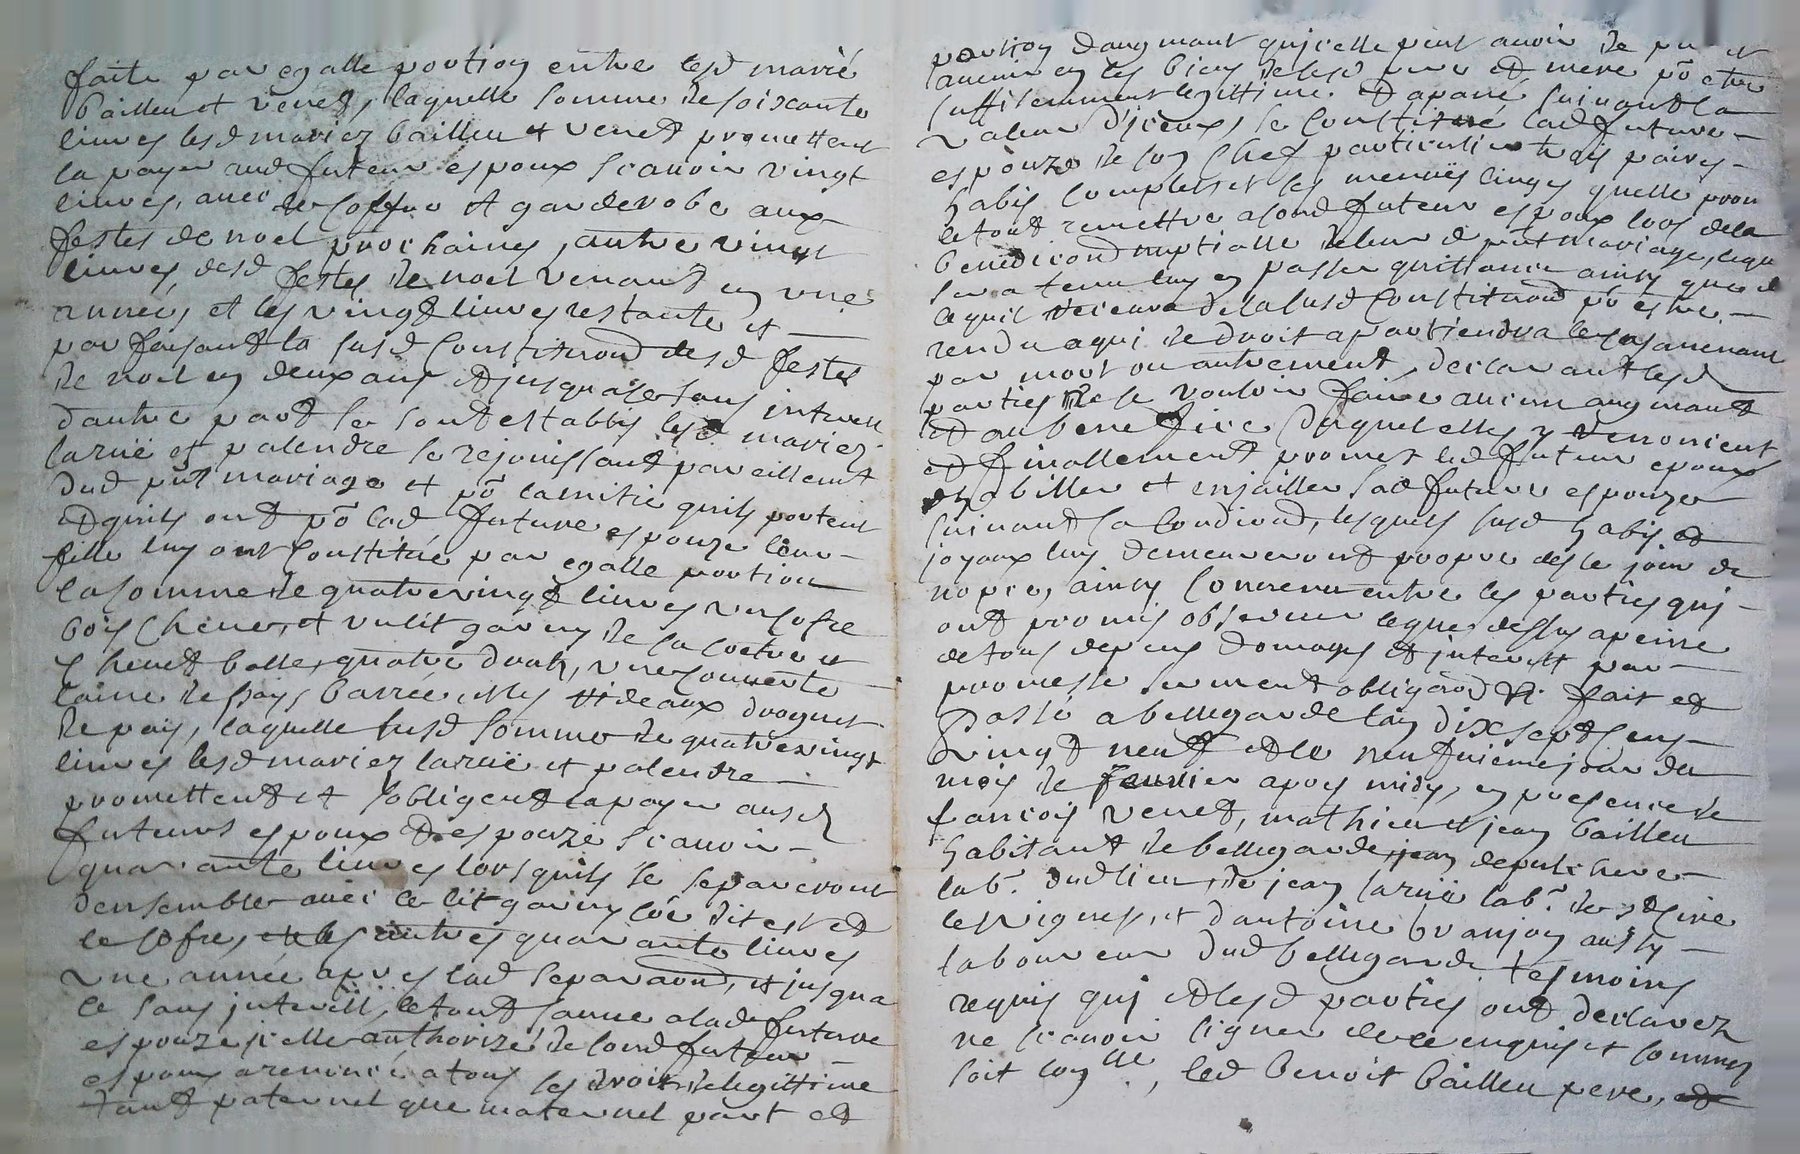 faite par egalle portion entre lesd mariè
bailleu et venet, laquelle somme de soixante
livres lesd mariez bailleu et venet promettent
la payer aud futeur espoux scauoir vingt
livres, auec le coffre et garderobe aux
festes de noel prochaines, autre vingt
livres, desd festes de noel venant en vne
année, et les vingt livres restante et
parfaisant la susd constitu͠on desd festes
de noel en deux ans et jusqua ce sans interest
dautre part se sont establis lesd mariez
laruë et palendre se rejouissant pareillemt
dud pñt mariage et pō lamitié quils portent
et quils ont pō lad future espouze leur
fille luy ont constitué par egalle portion
la somme de quatrevingt livres vn cofre
bois chêne, et vn lit garny de sa coetre et
chevet balle, quatre drah, vne couverte
laine de pays barrée, et les rideaux droguet
de pays, laquelle susd somme de quatrevingt
livres lesd mariez laruë et palendre
promettent et sobligent la payer ausd
futeurs espoux et espouze scauoir
quarante livres lors quils se separeront
densemble auec le lit garny côe dit est et
le cofre, et les autres quarante livres
vne année apres lad separa͠on, et jusqua
ce sans interest, le tout sauue a lad future
espouze, icelle authorizé de sond futeur
espoux a renoncé a tous les droits de legittime
tant paternel que maternel part et
portion daugmant quicelle peut auoir de pñt et
lauenir en les biens de sesd pere et mere pō etre
suffisemment legittimé et apané suiuant la
valeur diceux, se constitue lad future
espouze de son chef particulier trois paires
habis complets et ses menuës linges quelle prom
le tout remettre a sond futeur espoux lors de la
benedi͠on nuptialle de leur d pñt mariage, lequel
sera tenu luy en passer quittance ainsy que de
ce quil receura de la susd constitu͠on pō estre
rendu a qui de droit apartiendra le cas auenant
par mort ou autrement, declarant lesd
parties ne se vouloir faire aucun augmant
et au benefice duquel elles y renoncent
et finallement promet led futeur epoux
dhabiller et enjailler sad future espouze
suiuant sa condi͠on, lesquels susd habis et
joyaux luy demeureront propre des le jour de
nopce, ainsy conuenu entre les parties qui
ont promis obseruer ce que dessus a peine
de tous depens domages et interest par
promesse serment obliga͠on &. fait et
Passé a bellegarde lan dix sept cens
Vingt neuf et le neufuieme jour du
mois de feurier apres midy, en presence de
fancois venet, mathieu et jean bailleu
habitant de bellegarde, jean depuis chere
labr. dud lieu, de jean laruë labr. de st cire
les vignes, et dantoine branjon aussy
laboureur dud bellegarde tesmoins
requis qui et lesd parties ont declarez
ne scauoir signer de ce enquis et sommez
soit conllé, led benoit bailleu pere, et